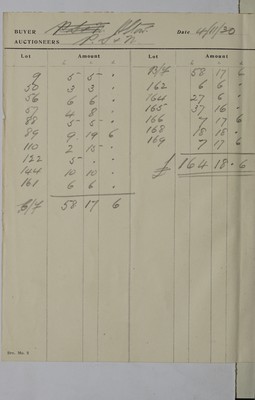 BUYER
AUCTIONEERS P. S & N.
Date. 4/11/20
Lot Amount
£ s d
9 5 5 •
50 3 3 •
56 6 6 •
57 4 8 •
88 5 5 •
89 9 19 6
110 2 15 •
122 5 • •
144 10 10 •
161 6 6 •
B/F 58 17 6
Lot Amount
£ s d
B/F 58 17 6
162 6 6 •
164 27 6 •
165 37 16 •
166 7 17 6
168 18 18 •
169 7 17 6
£ 164 18 • 6